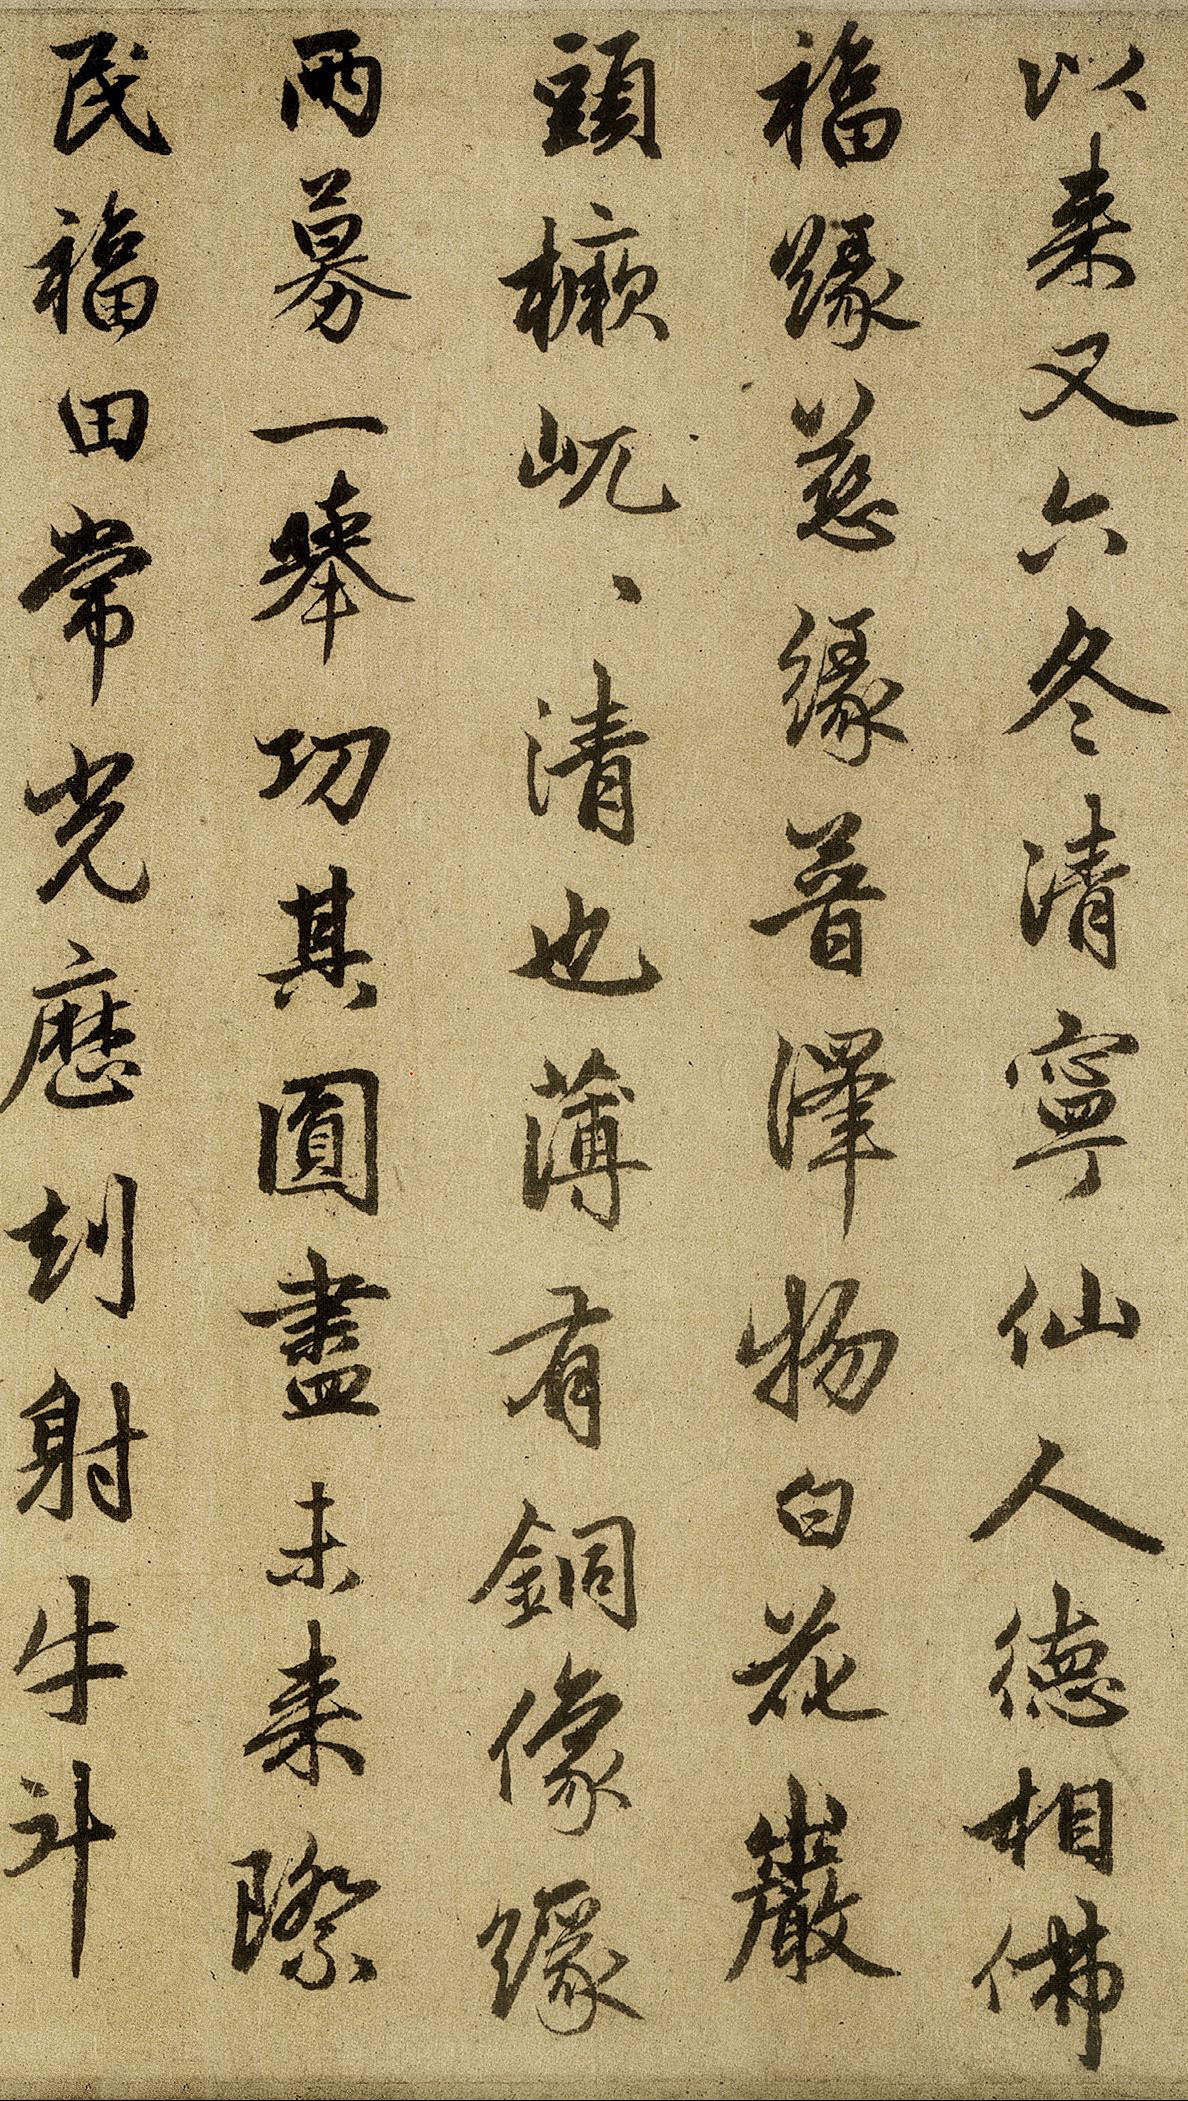 以来又六冬清寧仙人德相佛
福緣慈緣普澤物白花巖
頭橛屼丶清也薄有銅像緣
兩募一舉功其圓盡未来際
民福田常光歷刻射牛斗